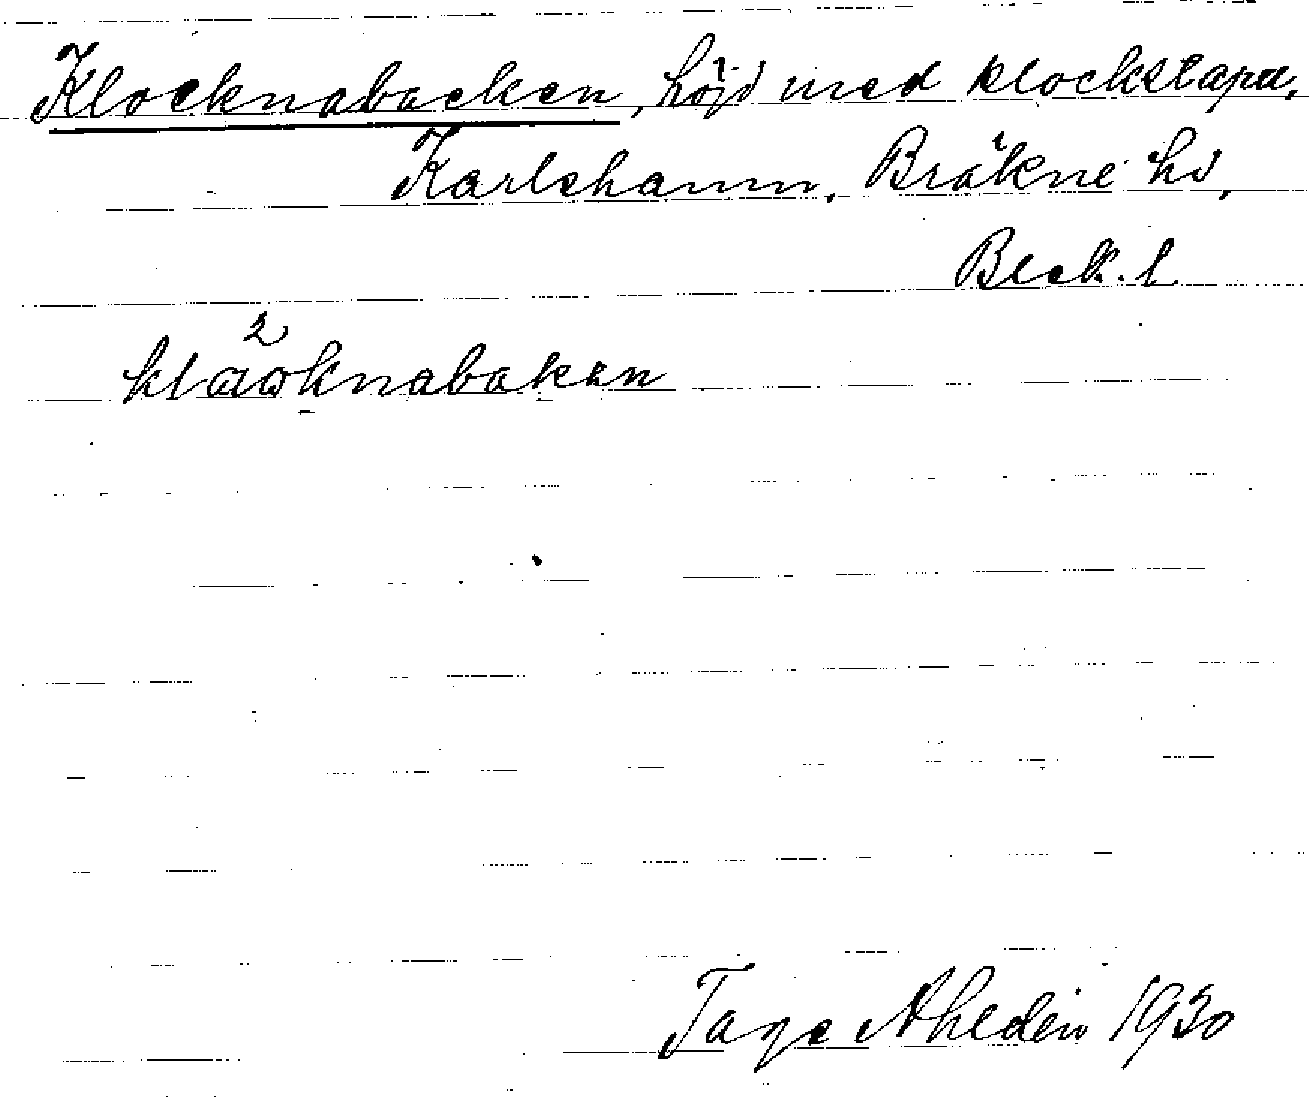 Klocknabacken, höjd med klockstapel,
Karlshamn, Bräkne hd,
Blek. l
2
klaoknabakan
Tage Ahldén 1930